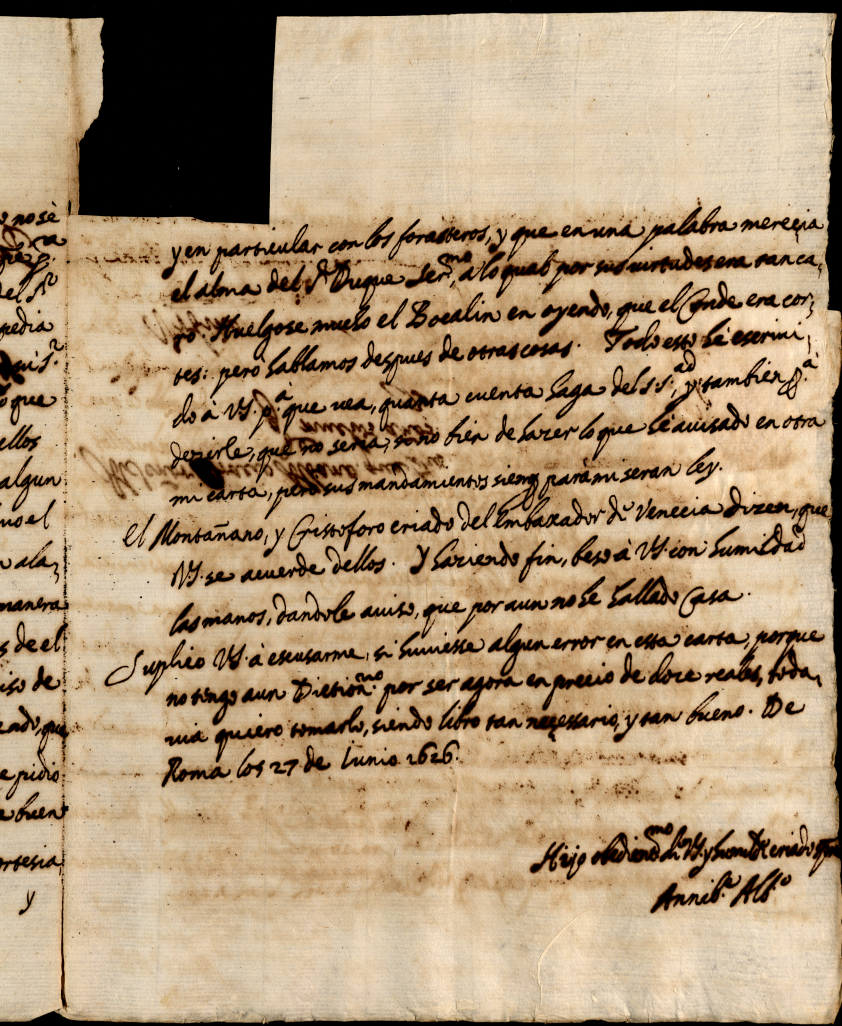 o no sè
del S.r
pedia
o que
ellos
algun
uo el
n ala,
manera
s de el
iso de
endo, que
e pidio
e buen
ortesia,
y
y en particular con los forasteros, y que en una palabra merecia
el alma del S.r Duque Ser.mo, a lo qual por sus virtudes era tan ca,
ro. Huelgose mucho el Bocalin en oyendo, que el Conde era cor,
tes: pero hablamos despues de otras cosas. Todo esto hè escrivi,
do à VS. p.a que vea, quanta cuenta haga del S.S.ad, y tambien p.a
dezirle, que no seria, sono bien de hazer lo que hè avisado en otra
mi carta, pero sus mandamientos siemp parà mi seran ley.
El Montañano, y Cristoforo criado del Embaxador de Venecia dizen, que
VS. se acuerde dellos. Y haziendo fin, beso à VS. con humildad
las manos, dandole aviso, que por aun no he hallado Casa.
Suplico VS. à escusarme, si huviesse algun error en esta carta, porque
no tengo aun Dictión.no por ser agora en precio de doze reales, toda,
via quiero tomarlo, siendo libro tan necessario, y tan bueno. De
Roma los 27 de Iunio 1626.
Hijo obedien.mo de VS. y humilde criado
Annib.e Alb.o